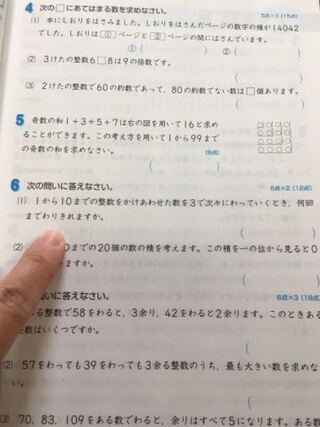 4 次の□にあてはまる数を求めなさい。 5点×3 (15点)
(1) 本にしおりをはさみました。しおりをはさんだページの数字の積が14042
でした。しおりは①ページと②ページの間にはさんでいます。
①( ) ②( )
(2) 3けたの整数6□8は9の倍数です。
( )
(3) 2けたの整数で60の約数であって、80の約数でない数は□個あります。
( )
5 奇数の和1+3+5+7は右の図を用いて16と求め
ることができます。この考え方を用いて1から99まで
の奇数の和を求めなさい。 (8点)
( )
6 次の問いに答えなさい。 6点×2 (12点)
(1) 1から10までの整数をかけあわせた数を3で次々にわっていくとき、何回
までわりきれますか。
( )
(2) 0までの20個の数の積を考えます。この積を一の位から見ると0
きますか。
( )
問いに答えなさい。 6点×3 (18点)
る数で58をわると、3余り、42をわると2余ります。このときある
数はいくつですか。
( )
(2) 57をわっても39をわっても3余る整数のうち、最も大きい数を求めな
い。
( )
(3) 70, 83, 109をある数でわると、余りはすべて5になります。ある数